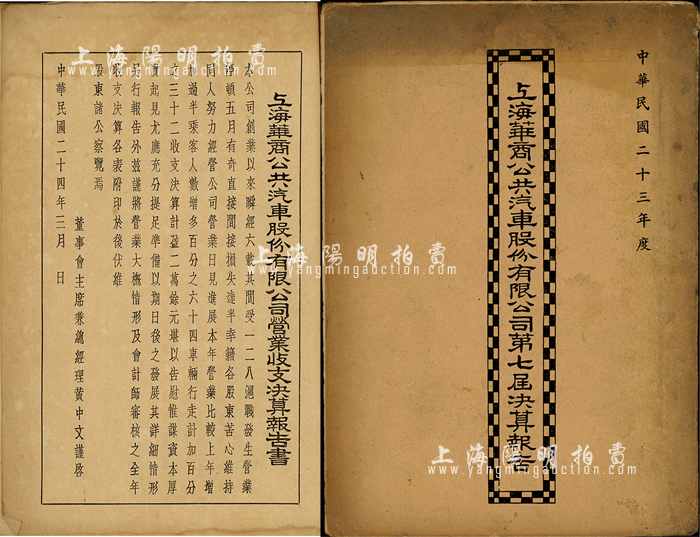 中華民國二十三年度
上海華商公共汽車股份有限公司第七屆決算報告
上海華商公共汽車股份有限公司營業收支決算報告書
本公司創業以來瞬經六載其間受一二八滬戰發生營業
停頓五月有奇直接間接損失達半幸籍各股東苦心維持
同人努力經營公司營業日見進展本年營業比較上年增
過半乘客人數增多百分之六十四車輛行走計加百分
之三十二收支決算計盈二萬餘元堪以告慰惟謀資本厚
實起見尤應充分提足準備以期日後之發展其詳細情形
另行報告外茲謹將營業大概情形及會計師審核之全年
收支決算各表附印於後伏維
股東諸公察覽焉
董事會主席兼總經理黃中文謹啓
中華民國二十四年三月 日
上海陽明拍賣
www.yangmingauction.com
上海陽明拍賣
www.yangmingauction.com
上海陽明拍賣
www.yangmingauction.com
上海陽明拍賣
www.yangmingauction.com
上海陽明拍賣
www.yangmingauction.com